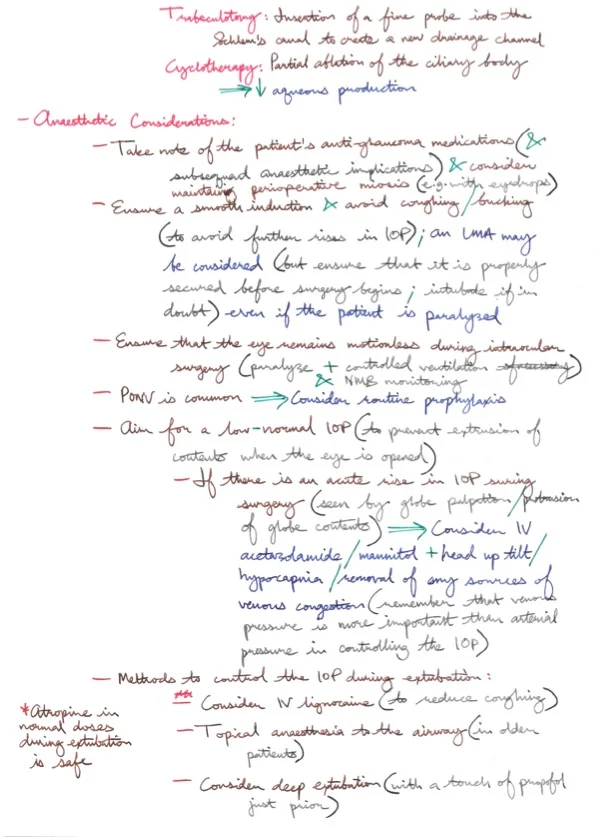 Trabeculotomy: Insertion of a fine probe into the
Schlem's canal to create a new drainage channel
Cyclotherapy: Partial ablation of the ciliary body
⟹ ↓ aqueous production
- Anaesthetic Considerations:
- Take note of the patient's anti-glaucoma medications (&
subsequent anaesthetic implications) & consider
maintaing perioperative miosis (e.g. with eyedrops)
- Ensure a smooth induction & avoid coughing/bucking
(to avoid further rises in IOP); an LMA may
be considered (but ensure that it is properly
secured before surgery begins; intubate if in
doubt) even if the patient is paralyzed
- Ensure that the eye remains motionless during intraocular
surgery (paralyze + controlled ventilation)
& NMB monitoring
- PONV is common ⟹ Consider routine prophylaxis
- Aim for a low-normal IOP (to prevent extrusion of
contents when the eye is opened)
- If there is an acute rise in IOP suring
surgery (seen by globe palpation/protrusion
of globe contents) ⟹ Consider IV
acetazolamide/mannitol + head up tilt/
hypocapnia/removal of any sources of
venous congestion (remember that venous
pressure is more important than arterial
pressure in controlling the IOP)
- Methods to control the IOP during extubation:
** - Consider IV lignocaine (to reduce coughing)
- Topical anaesthesia to the airway (in older
patients)
- Consider deep extubation (with a touch of propofol
just prior)
*Atropine in
normal doses
during extubation
is safe